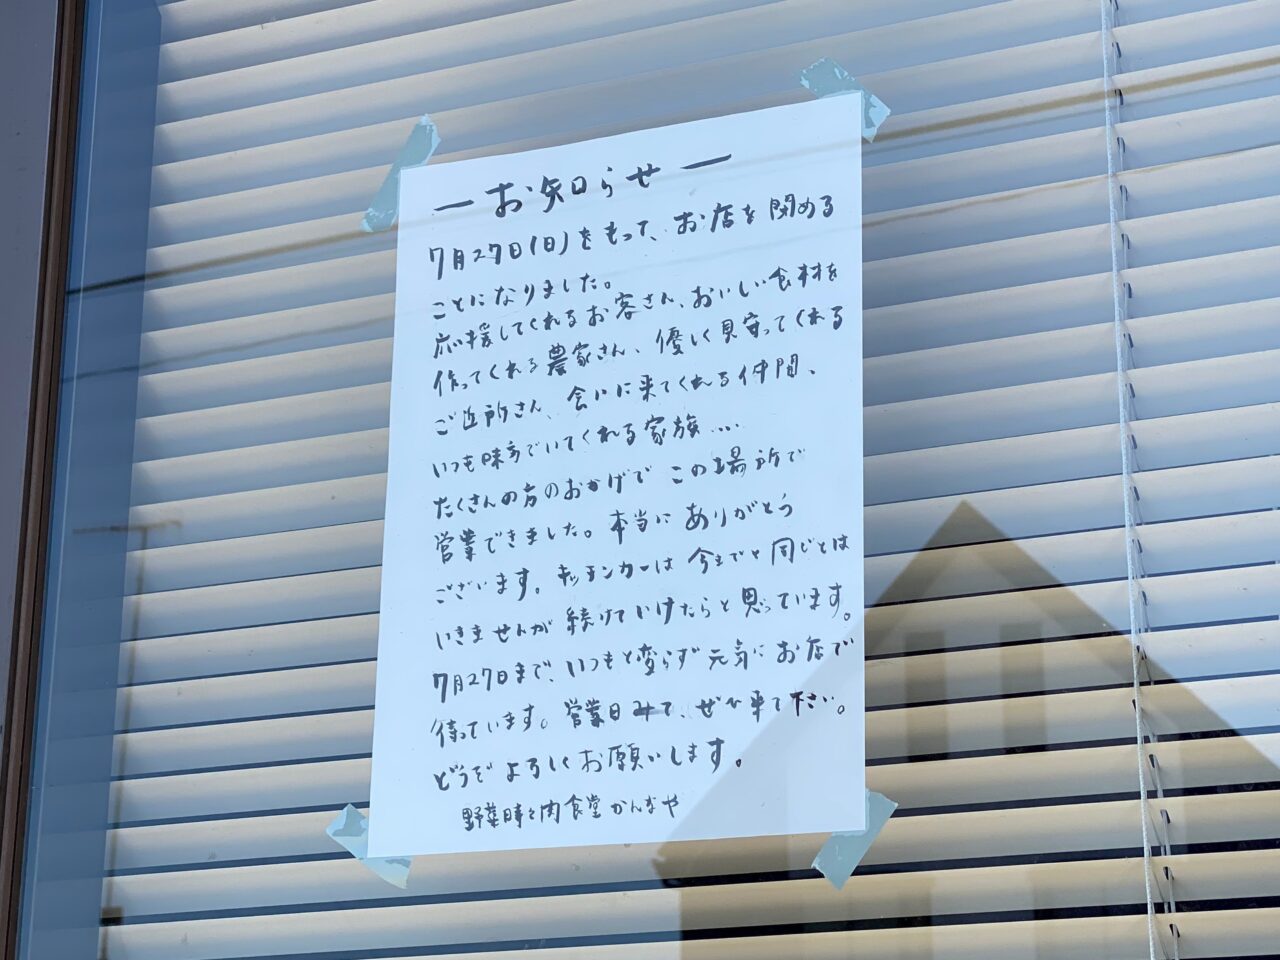 ーお知らせー
7月27日(日)をもって、お店を閉める
ことになりました。
応援してくれるお客さん、おいしい食材を
作ってくれる農家さん、優しく見守ってくれる
ご近所さん、会いに来てくれる仲間、
いつも味方でいてくれる家族....
たくさんの方のおかげで この場所で
営業できました。本当に ありがとう
ございます。キッチンカーは 今までと同じとは
いきませんが 続けていけたらと思っています。
7月27日まで、いつもと変らず元気にお店で
待っています。営業日みて、ぜひ来て下さい。
どうぞよろしくお願いします。
野菜時々肉食堂 かんなや